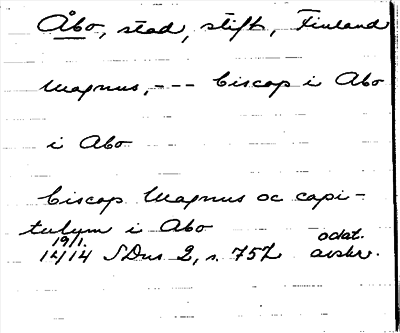 Åbo, stad, stift, Finland
Magnus, --- biscop i Abo
i Abo
biscop Magnus oc capi-
tulum i Abo
19/1. odat.
1414 SDns 2, s. 752 avskr.